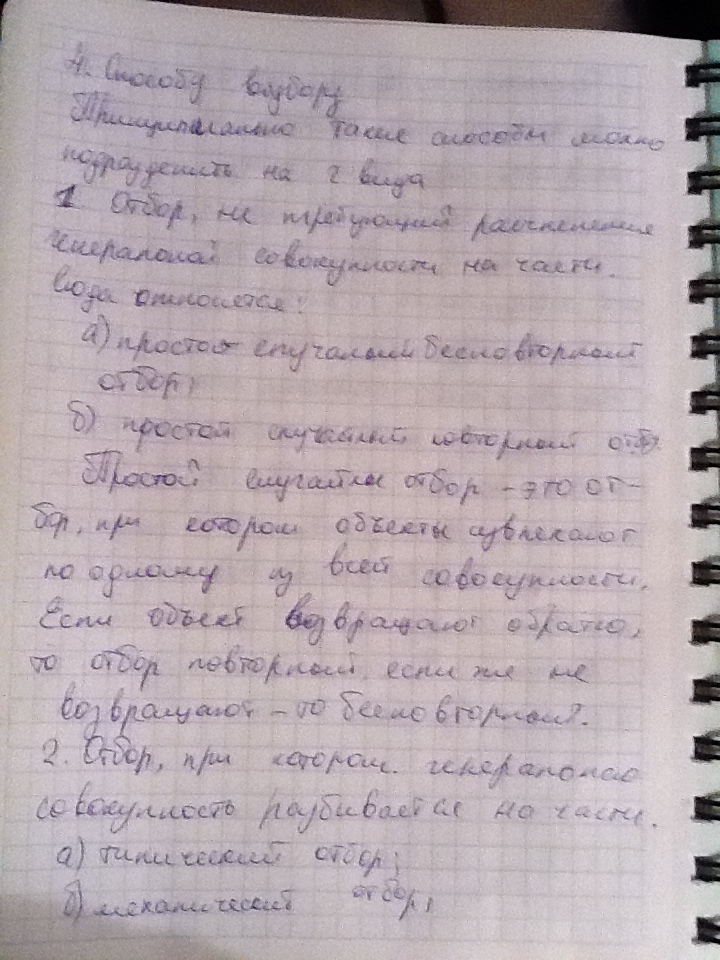 4. Способу выбору
Принципиально такие способы можно
подразделить на 2 вида
1. Отбор, не требующий расчленение
генеральной совокупности на части.
Сюда относятся:
а) простой случайный бесповторный
отбор;
б) простой случайный повторный отб
Простой случайное отбор - это от-
бор, при котором объекты извлекают
по одному из всей совокупности.
Если объект возвращают обратно,
то отбор повторный, если же не
возвращают - то бесповторный.
2. Отбор, при котором генеральною
совокупность разбивается на части.
а) типический отбор;
б) механический отбор;